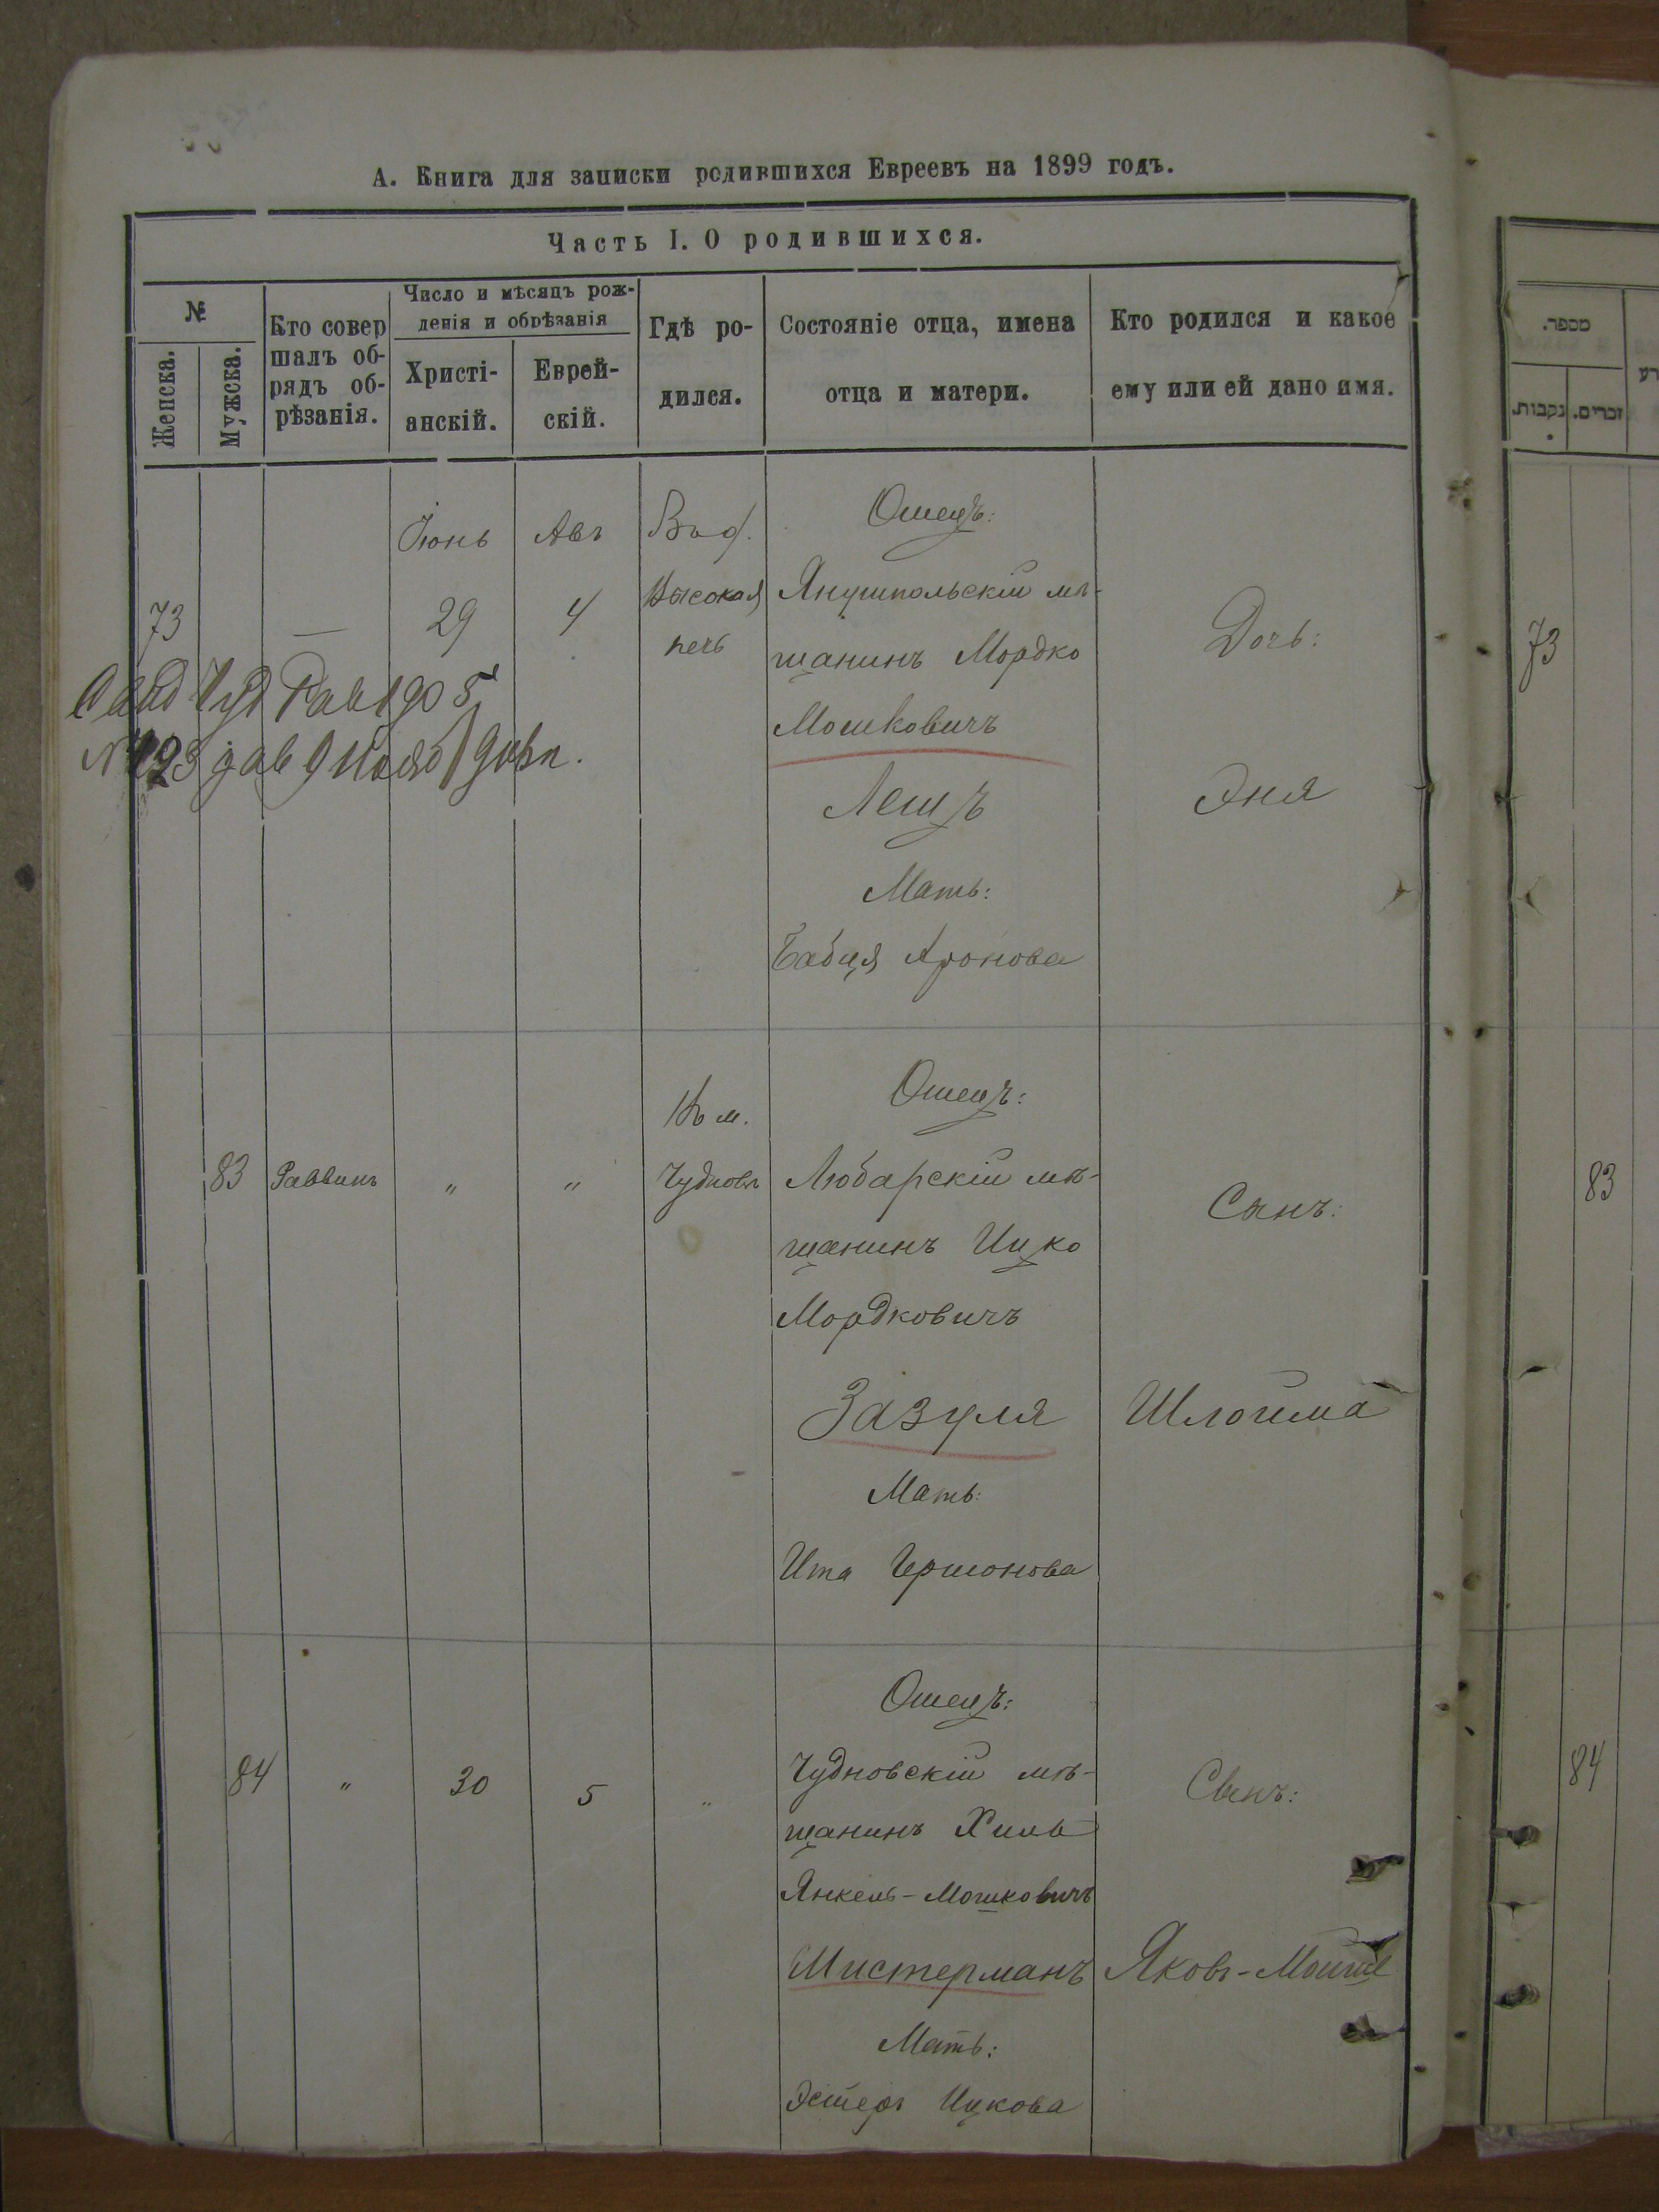 А. Книга для записки родившихся Евреевъ на 1899 годъ.
Часть I. О родившихся.
№
Женска.
Мужска.
Кто совер
шалъ об-
рядъ об-
рѣзанія.
Число и мѣсяцъ рож-
денія и обрѣзанія
Христі-
анскій.
Еврей-
скій.
Гдѣ ро-
дился.
Состояніе отца, имена
отца и матери.
Кто родился и какое
ему или ей дано имя.
73
—
Іюнь
29
Авъ
4
Высокая
печь
Отецъ:
Янушпольскій мѣ-
щанинъ Мордко
Мошковичъ
Лещъ
Мать:
Бабця Аронова
Дочь:
Эня
1905
83
Раввинъ
"
"
Въ м.
Чудновѣ
Отецъ:
Любарскій мѣ-
щанинъ Ицко
Мордковичъ
Зазуля
Мать:
Ита Гершонова
Сынъ:
Шлойма
84
"
30
5
"
Отецъ:
Чудновскій мѣ-
щанинъ Хиль
Янкель-Мошковичъ
Мистерманъ
Мать:
Эстеръ Ицкова
Сынъ:
Яковъ-Мойше
מספר.
נקבות.
זכרים.
73
83
84